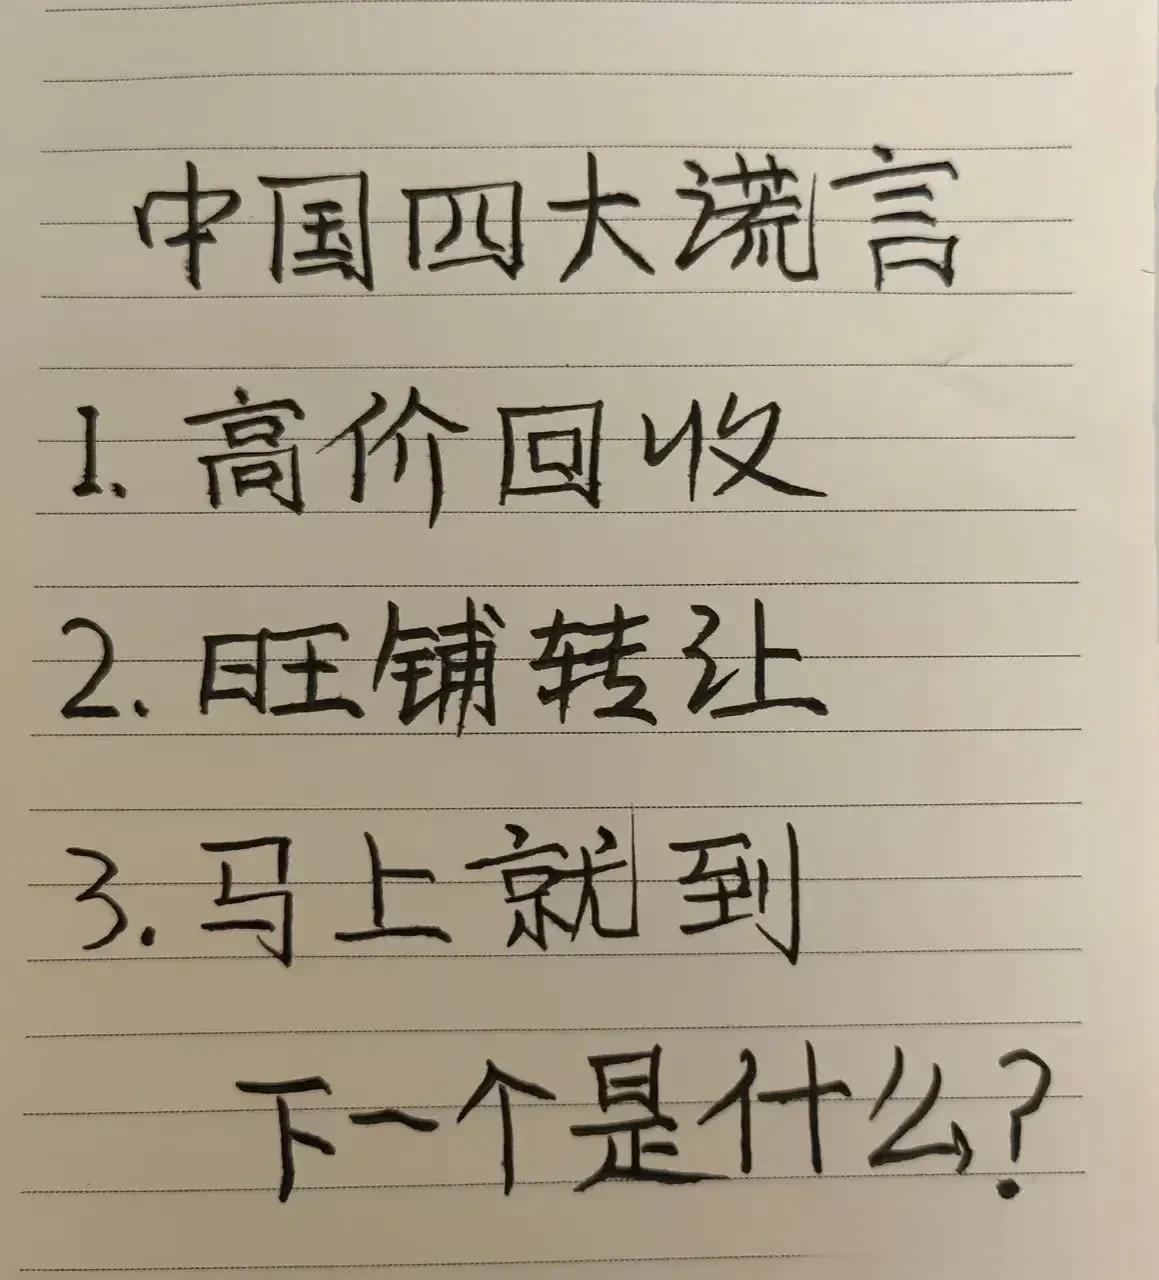 中国四大谎言
1. 高价回收
2. 旺铺转让
3. 马上就到
下一个是什么?